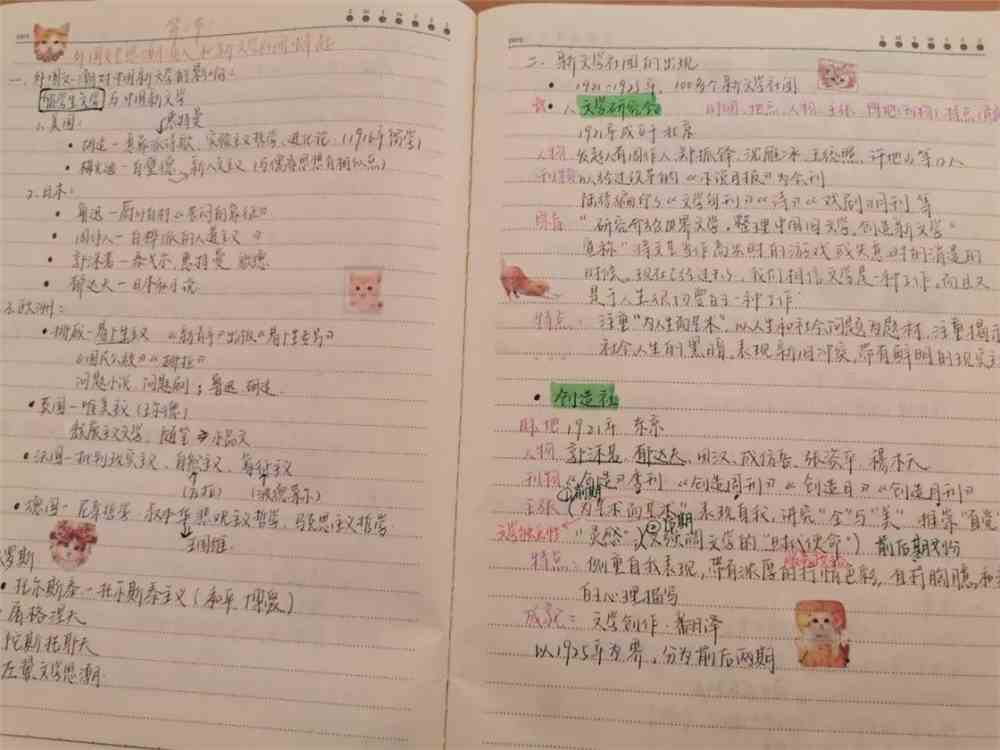 第二节
外国文艺思潮的涌入和新文学社团的蜂起
一、外国文艺思潮对中国新文学的影响:
留学生文学 与中国新文学
1.美国: 惠特曼
• 胡适—意象派诗歌、实验主义哲学、进化论(1916年留学)
• 梅光迪—白璧德 新人文主义(与儒家思想有相似点)
2.日本:
• 鲁迅—厨川白村《苦闷的象征》
• 周作人—白桦派的人道主义
• 郭沫若—泰戈尔、惠特曼、歌德
• 郁达夫—日本私小说
3.欧洲:
• 挪威—易卜生主义 《新青年》出版《易卜生专号》
《国民公敌》《娜拉》
问题小说、问题剧;鲁迅、胡适
• 英国—唯美主义(王尔德)
主义文学、随笔→小品文
• 法国—批判现实主义、自然主义、象征主义
(左拉) (波德莱尔)
• 德国—尼采哲学、叔本华悲观主义哲学、马克思主义哲学
王国维
罗斯
• 托尔斯泰—托尔斯泰主义(和平、博爱)
屠格涅夫
陀斯托斯夫
左翼文学思潮
二、新文学社团的出现
• 1921-1925年,100多个新文学社团
• 1. 文学研究会 时间、地点、人物、主张、阵地(刊物)、特点
1921年成立于北京
人物 发起人有周作人、郑振铎、沈雁冰、王统照、许地山等12人
刊物 以经过改革的《小说月报》为会刊
陆续编印了《文学旬刊》《诗》《戏剧》月刊等
宗旨 "研究介绍世界文学,整理中国旧文学,创造新文学"
宣称"将文艺当作高兴时的游戏或失意时的消遣的
时候,现在已经过去了,我们相信文学是一种工作,而且又
是于人生很切要的一种工作
特点: 注重"为人生而艺术",以人生和社会问题为题材,注重揭示
社会人生的黑暗,表现新旧冲突,带有鲜明的现实主
• 创造社
时、地 1921年 东京
人物 郭沫若、郁达夫、田汉、成仿吾、张资平、穆木天
刊物 《创造》季刊 《创造周刊》《创造日》《创造月刊》
主张 前期 (为艺术而艺术" 表现自我,讲究"全"与"美" 推崇"直觉
文学独立性 "灵感")②后期(强调文学的"时代使命") 前后期区分
特点: 侧重自我表现,带有浓厚的抒情色彩,直抒胸臆和
自主心理描写
成就: 文学创作、翻译
以1925年为界,分为前后两期